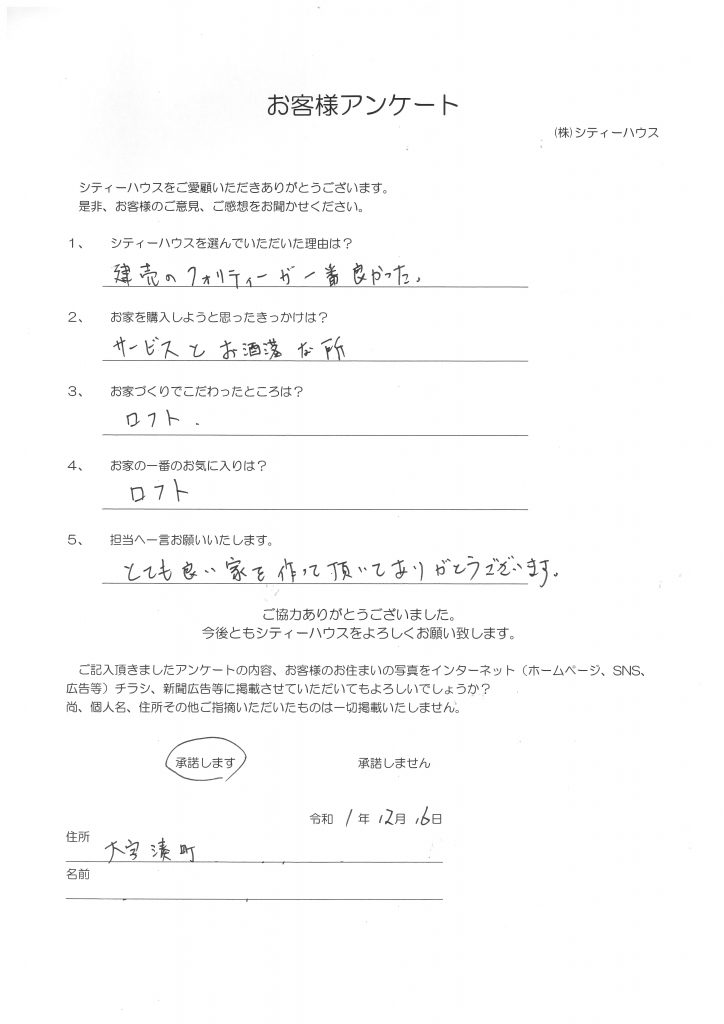 お客様アンケート
(株)シティーハウス
シティーハウスをご愛顧いただきありがとうございます。
是非、お客様のご意見、ご感想をお聞かせください。
1、 シティーハウスを選んでいただいた理由は?
建売のクォリティーが一番良かった。
2、 お家を購入しようと思ったきっかけは?
サービスとお洒落な所
3、 お家づくりでこだわったところは?
ロフト.
4、 お家の一番のお気に入りは?
ロフト
5、 担当へ一言お願いいたします。
とても良い家を作って頂いてありがとうございます。
ご協力ありがとうございました。
今後ともシティーハウスをよろしくお願い致します。
ご記入頂きましたアンケートの内容、お客様のお住まいの写真をインターネット(ホームページ、SNS、
広告等)チラシ、新聞広告等に掲載させていただいてもよろしいでしょうか?
尚、個人名、住所その他ご指摘いただいたものは一切掲載いたしません。
承諾します 承諾しません
令和 1年 12月 16日
住所 大字湊町
名前